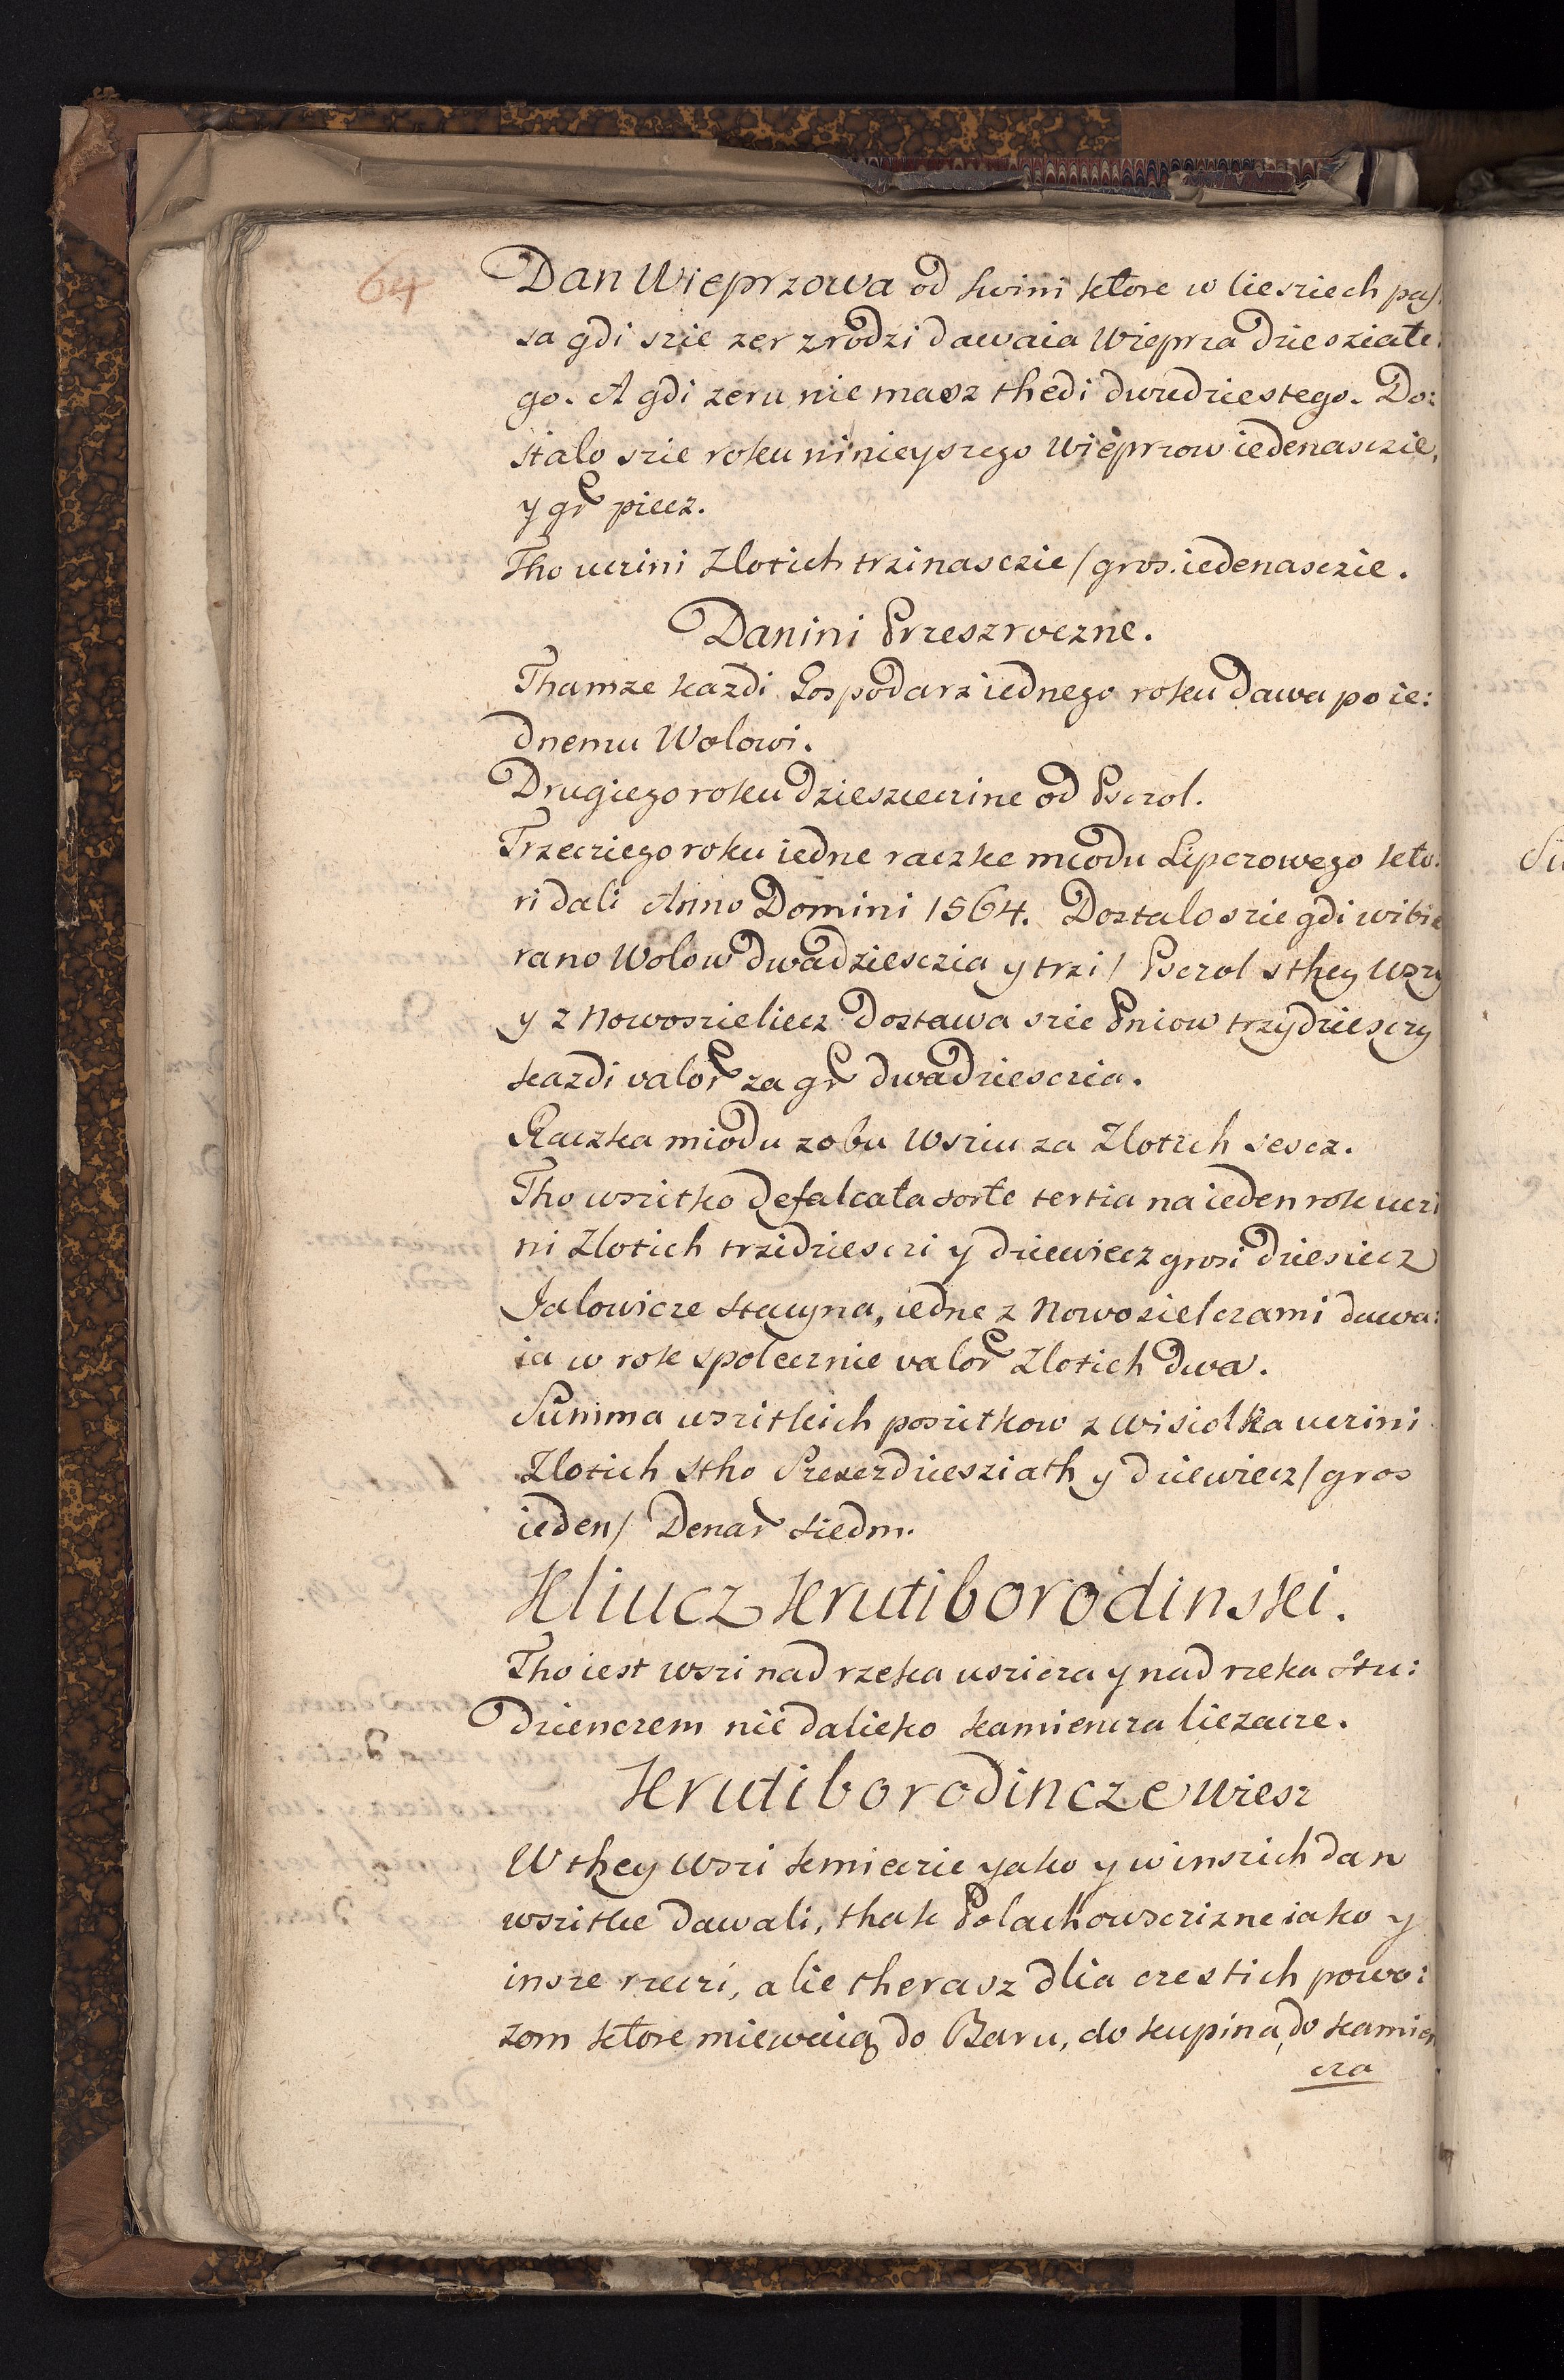 64
Dan Wieprzowa od swini ktore w liesziech pas
sa gdi szie zer zrodzi dawaia Wieprza dziesziate:
go. A gdi zeru nie masz thedi dwudziestego. Do:
stalo szie roku ninieyszego Wieprzow iedenasczie,
y gr piecz.
Tho uczini Zlotich trzinasczie / gros. iedenasczie.
Danini Przeszroczne.
Thamze kazdi Gospodarz iednego roku dawa po ie:
dnemu Wolowi.
Drugiego roku dzieszieczine od Psczol.
Trzecziego roku iedne raczke miodu Lipczowego kto:
ri dali Anno Domini 1564. Dostalo szie gdi wibie
rano Wolow dwadziesczia y trzi / Psczol s they Wszy
y z Nowoszieliecz dostawa szie Pniow trzydziesczy
kazdi valor za gr dwadziesczia.
Raczka miodu z obu Wsziu za Zlotich sescz.
Tho wszitko defalcata sorte tertia na ieden rok uczi
ni Zlotich trzidziesczi y dziewiecz grosi dziesiecz
Jalowicze stacyna, iedne z Nowosielczami dawa:
ia w rok spolecznie valor Zlotich dwa.
Summa wszitkich poszitkow z Wisiolka uczini
Zlotich stho Szesczdziesziath y dziewiecz / gros
ieden / Denar siedm.
Kliucz Krutiborodinski.
Tho iest wszi nad rzeka uszicza y nad rzeka Stu:
dzienczem nie dalieko kamiencza liezacze.
Krutiborodincze Wiesz
W they Wszi kmieczie yako y w inszich dan
wszitke dawali, thak Polachowsczizne iako y
insze rzeczi, alie therasz dlia czestich powo:
zom ktore miewaią do Baru, do kupina, do kamien
cza